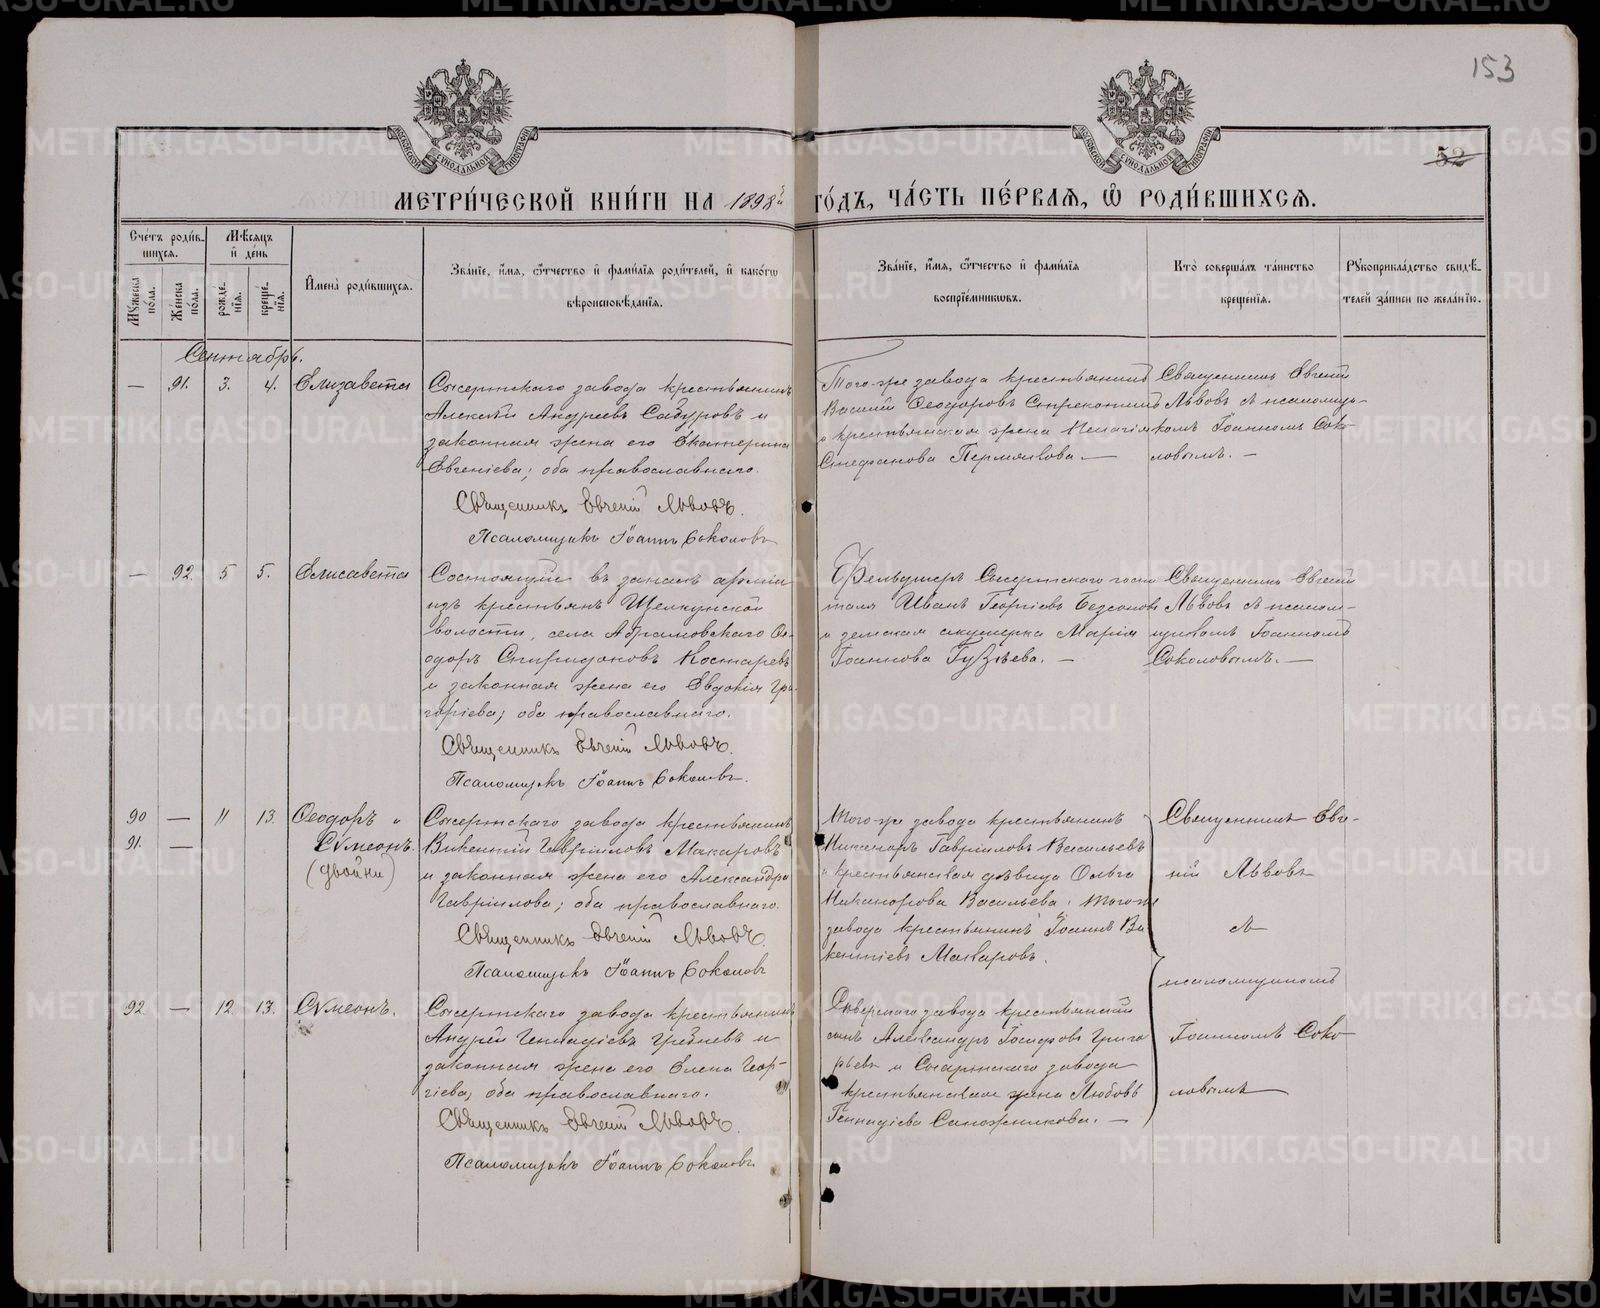 153
52
МЕТРИ́ЧЕСКОЙ КНИ́ГИ НА 1898й ГО́ДЪ, ЧА́СТЬ ПЕ́РВАЯ, Ѡ҆ РОДИ́ВШИХСЯ.
Сче́тъ роди́вшихся.
Мѣ́сяцъ и҆ де́нь
Мꙋ́жеска по́ла.
Же́нска по́ла.
рожде́нїя.
креще́нїя.
И҆мена̀ роди́вшихся.
Зва́нїе, и҆́мя, ѻ҆́тчество и҆ фами́лїя роди́телей, и҆ како́гѡ
вѣроисповѣ́данїя.
Зва́нїе, и҆́мя, ѻ҆́тчество и҆ фами́лїя
воспрїе́мниковъ.
Кто̀ соверша́лъ та́инство
креще́нїя.
Рꙋкоприкла́дство свидѣ́телей за́писи по жела́нїю.
Сентябрь.
— 91. 3. 4. Елизавета
Сысертскаго завода крестьянинъ
Алексѣй Андреевъ Сабуровъ и
законная жена его Екатерина
Евгеніева; оба православнаго.
Священникъ Евгеній Львовъ.
Псаломщикъ Іоаннъ Соколовъ
Того-же завода крестьянинъ
Василій Ѳеодоровъ
и крестьянская жена Пелагія
Стефанова Пермякова. —
Священникъ Евгеній
Львовъ съ псаломщи-
комъ Іоанномъ Соко-
ловымъ. —
— 92. 5 5. Елисавета
Состоящій въ запасѣ арміи
изъ крестьянъ Щелкунской
волости, села Абрамовскаго Ѳе-
одоръ Спиридоновъ Костаревъ
и законная жена его Евдокія Гри-
горіева; оба православнаго.
Священникъ Евгеній Львовъ.
Псаломщикъ Іоаннъ Соколовъ.
Фельдшеръ Сысертскаго госпи
таля Иванъ Георгіевъ Безсоновъ
и земская акушерка Марія
Іоаннова Гузѣева. —
Священникъ Евгеній
Львовъ съ псалом-
щикомъ Іоанномъ
Соколовымъ. —
90 — 11 13. Ѳеодоръ и
91. — Сѵмеонъ.
(двойни)
Сысертскаго завода крестьянинъ
Викентій Гавріиловъ Макаровъ
и законная жена его Александра
Гавріилова; оба православнаго.
Священникъ Евгеній Львовъ.
Псаломщикъ Іоаннъ Соколовъ
Того-же завода крестьянинъ
Никаноръ Гавріиловъ Васильевъ
и крестьянская дѣвица Ольга
Никанорова Васильева; того-же
завода крестьянинъ Іоаннъ Ви
кентіевъ Макаровъ.
Священникъ Евге-
ній Львовъ
съ
псаломщикомъ
Іоанномъ Соко-
ловымъ
92 — 12. 13. Сѵмеонъ.
Сысертскаго завода крестьянинъ
Андрей Геннадіевъ Гребневъ и
законная жена его Елена Геор-
гіева; оба православнаго.
Священникъ Евгеній Львовъ.
Псаломщикъ Іоаннъ Соколовъ.
Сѣверскаго завода крестьянскій
сынъ Александръ Іосифовъ Григо
рьевъ и Сысертскаго завода
крестьянская жена Любовь
Геннадіева Сапожникова. —
METRIKI.GASO-URAL.RU